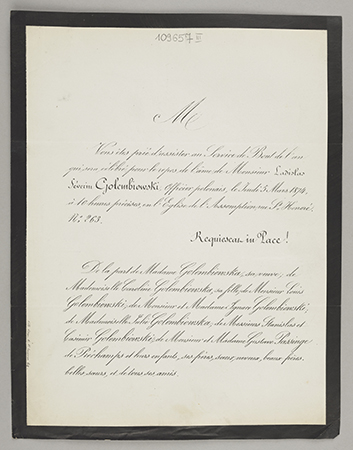 109657 III
M
Vous êtes prié d'assister au Service de Bout de l'an
qui sera célébré pour le repos de l'âme de Monsieur Ladislas
Séverin Golembiowski, Officier polonais, le Jeudi 5 Mars 1874,
à 10 heures précises, en l'Eglise de l'Assomption, rue St. Honoré,
No. 263.
Requiescat in Pace!
De la part de Madame Golembiowska, sa veuve; de
Mademoiselle Caroline Golembiowska, sa fille; de Monsieur Louis
Golembiowski; de Monsieur et Madame Ignace Golembiowski;
de Mademoiselle Julie Golembiowska; de Messieurs Stanislas et
Casimir Golembiowski; de Monsieur et Madame Gustave Passinge
de Préchamps et leurs enfants, ses frères, sœur, neveux, beaux-frères,
belles sœurs, et de tous ses amis.